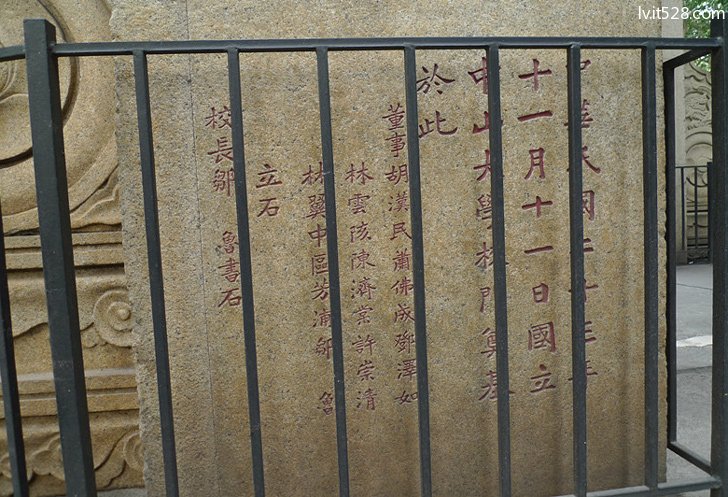 lvit528.com
中華民國二十年
十一月十一日國立
中山大學校門奠基
於此
董事胡漢民蕭佛成鄧澤如
林雲陔陳濟棠許崇清
林翼中區芳浦鄒魯
立石
校長鄒魯書石